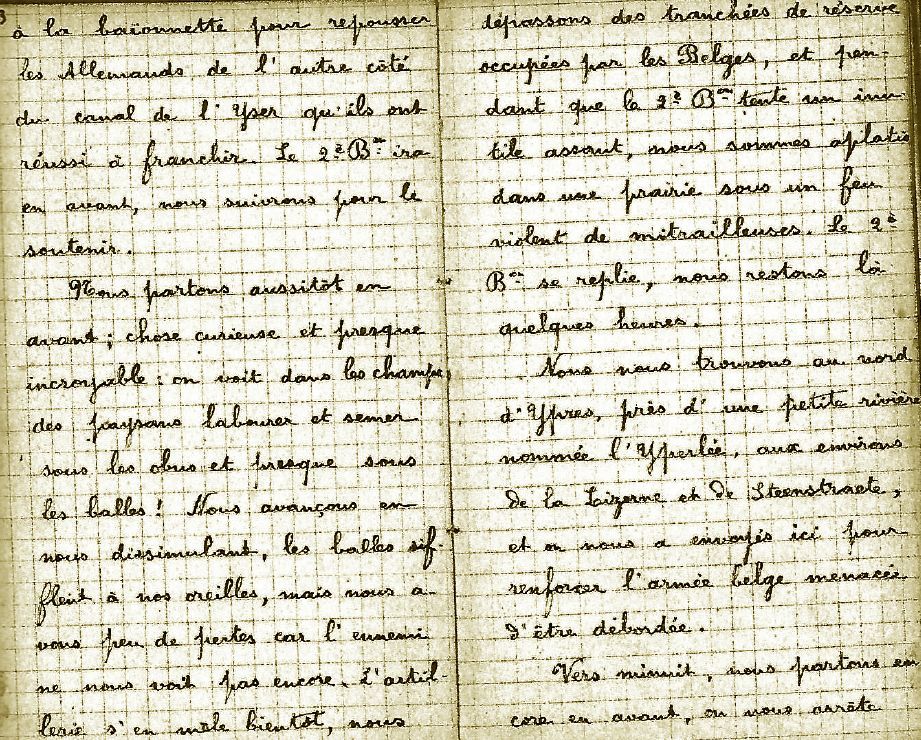 3
à la baïonnette pour repousser
les Allemands de l'autre côté
du canal de l'Yser qu'ils ont
réussi à franchir. Le 2e Bon ira
en avant, nous suivrons pour le
soutenir.
Nous partons aussitôt en
avant ; chose curieuse et presque
incroyable : on voit dans les champs,
des paysans labourer et semer
sous les obus et presque sous
les balles ! Nous avançons en
nous dissimulant, les balles sif-
flent à nos oreilles, mais nous a-
vons peu de pertes car l'ennemi
ne nous voit pas encore. L'artil-
lerie s'en mêle bientôt, nous
dépassons des tranchées de réserve
occupées par les Belges, et pen-
dant que le 2e Bon tente un inu-
tile assaut, nous sommes aplatis
dans une prairie sous un feu
violent de mitrailleuses. Le 2e
Bon se replie, nous restons là
quelques heures.
Nous nous trouvons au nord
d'Ypres, près d'une petite rivière
nommée l'Yperlée, aux environs
de la Lizerne et de Steenstraete,
et on nous a envoyés ici pour
renforcer l'armée belge menacée
d'être débordée.
Vers minuit, nous partons en
core en avant, on nous arrête